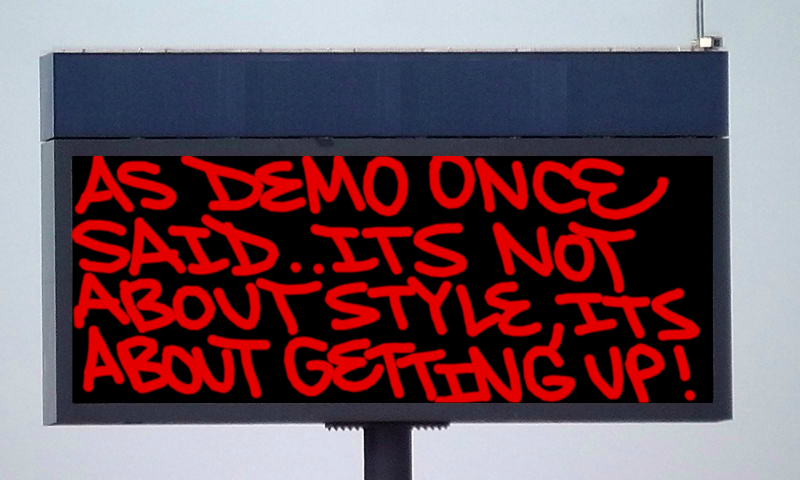 AS DEMO ONCE
SAID..ITS NOT
ABOUT STYLE, ITS
ABOUT GETTING UP!